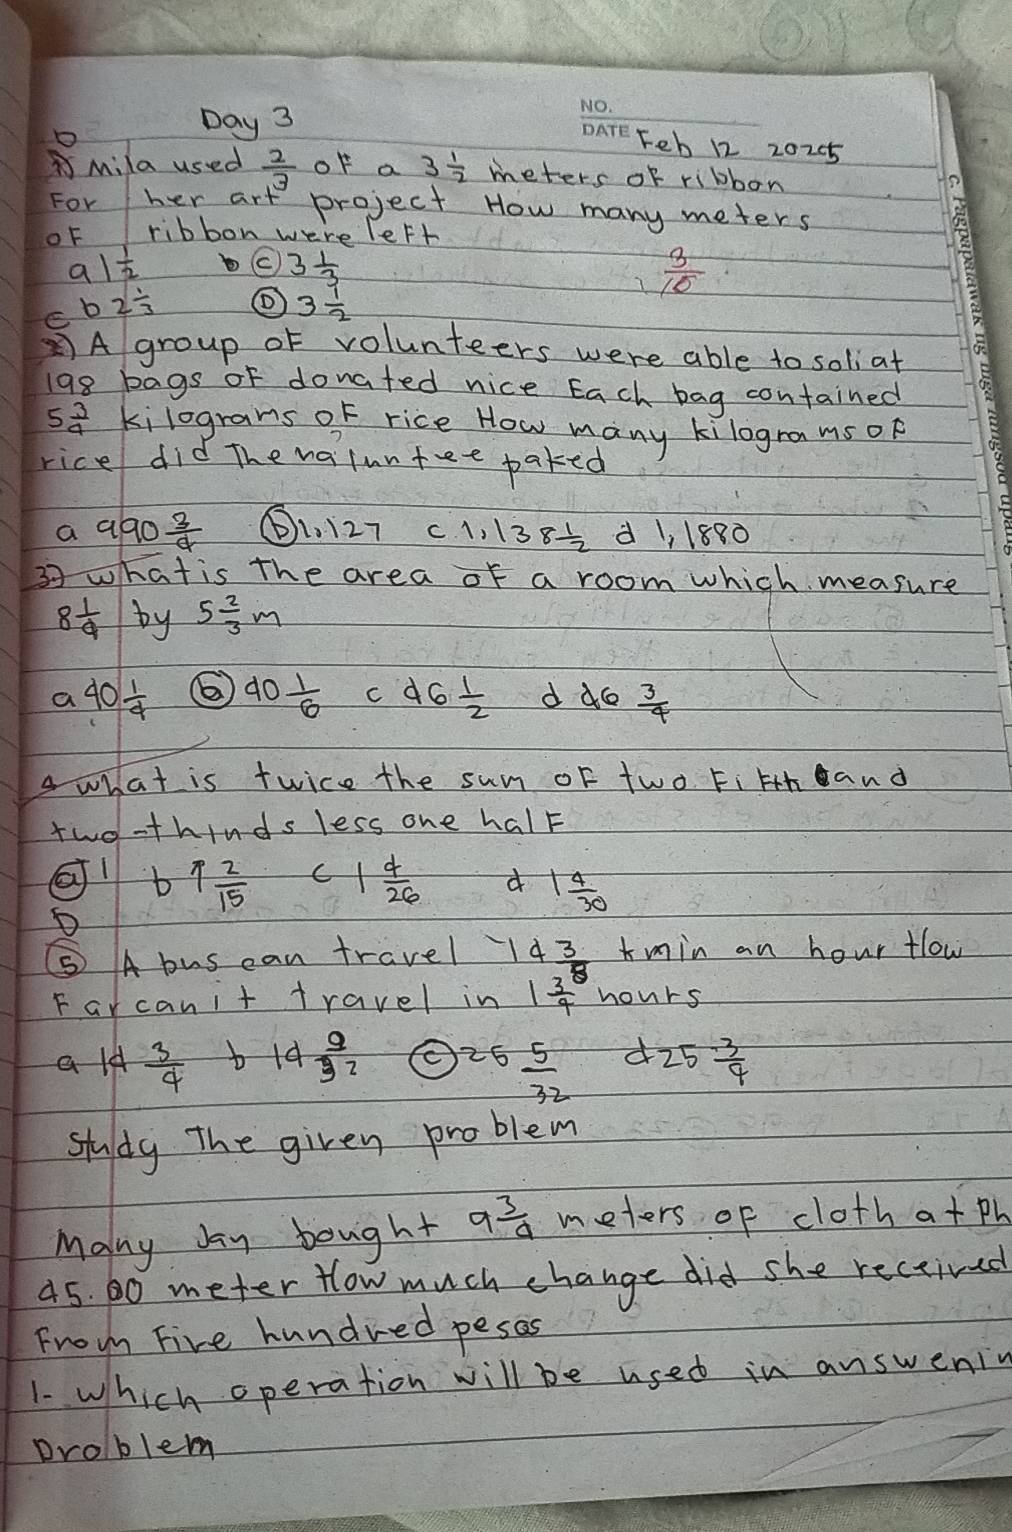 Day 3
NO.
DATE Feb 12 2025
b
1) Mila used 2/3 of a 3 1/2 meters of ribbon
For her art project How many meters
of ribbon were left
a 1 1/2 b (c) 3 1/3
3/10
c b 2 1/3 (D) 3 1/2
2) A group of volunteers were able to
198 bags of donated nice Each bag contained
5 3/4 kilograms of rice How many kilograms of
rice did The paked
a 990 3/4 (b) 1,127 c 1,138 1/2 d 1,1880
3) what is the area of a room which measure
8 1/4 by 5 2/3 m
a 40 1/4 (b) 40 1/6 c 46 1/2 d 46 3/4
4 what is twice the sum of two Fifth and
two-thinds less one half
(a) 1 b 1 2/15 c 1 4/26 d 1 4/30
D
(5) A bus can travel 14 3/8 kmin an hour How
Far can it travel in 1 3/4 hours
a 14 3/4 b 14 9/32 (c) 25 5/32 d 25 3/4
Study The given problem
Many Jan bought 9 3/4 meters of cloth at Ph
45.00 meter How much change did she received
From Five hundred pesos
1- Which operation will be used in answenin
problem
c. Pagpapatawak ng mga